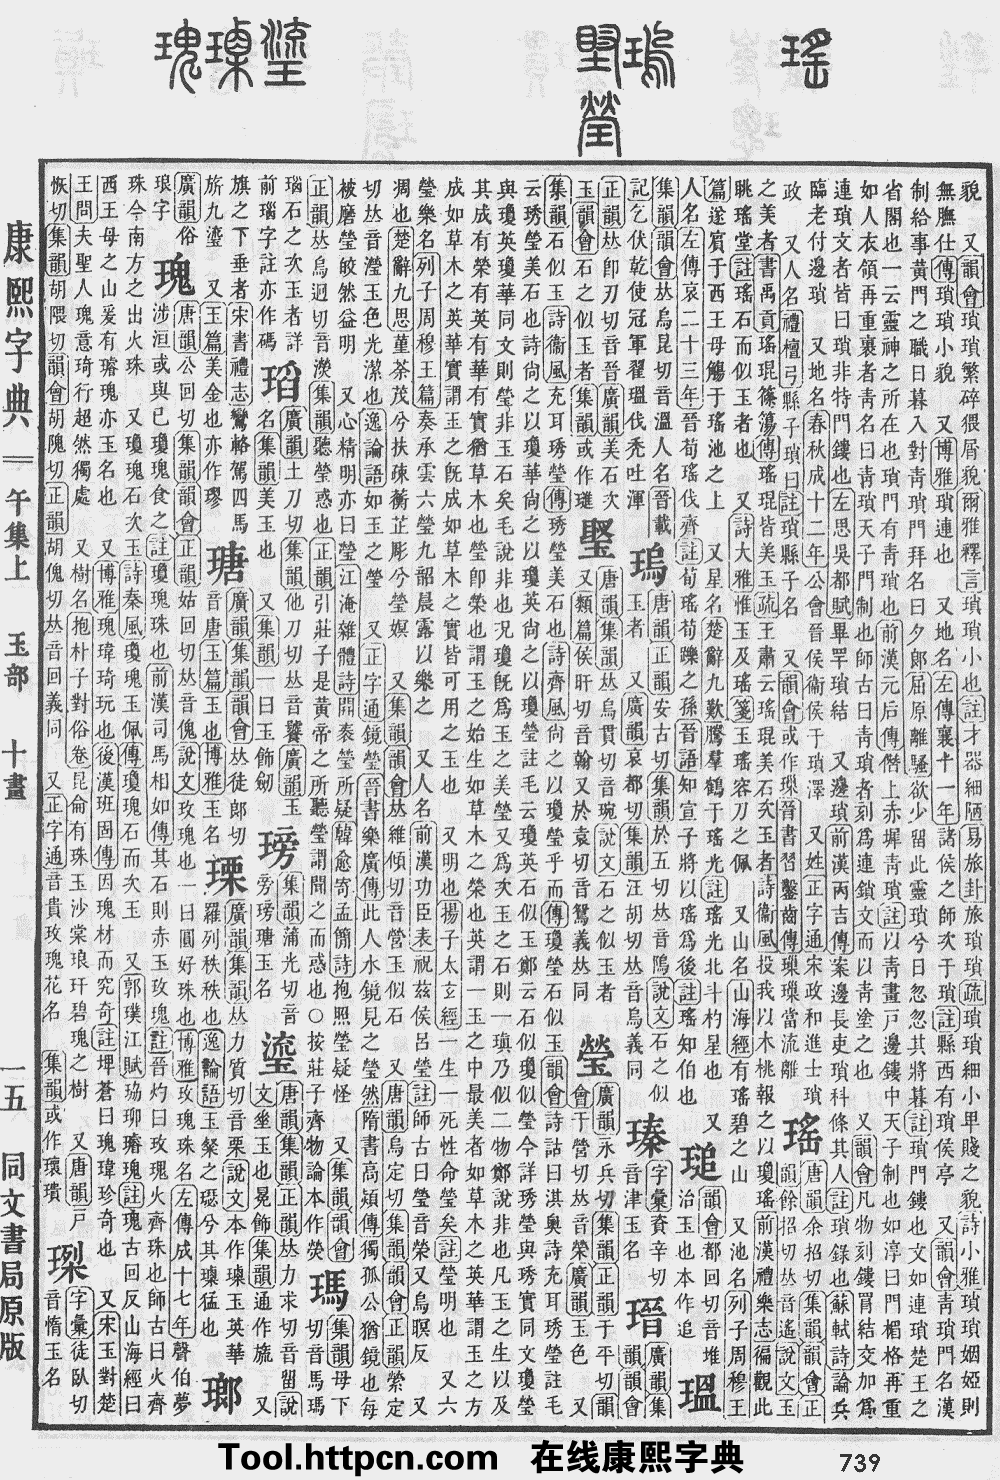 貌 又韻會瑣瑣繁碎猥屑貌爾雅釋言瑣瑣小也註才器細陋易旅卦旅瑣瑣疏瑣瑣細小卑賤之貌詩小雅瑣瑣姻婭則
無膴仕傳瑣瑣小貌 又博雅瑣連也 又地名左傳襄十一年諸侯之師次于瑣註縣西有瑣侯亭 又韻會靑瑣門名漢
制給事黃門之職日暮入對靑瑣門拜名曰夕郞屈原離騷欲少留此靈瑣兮日忽忽其將暮註瑣門鏤也文如連瑣楚王之
省閣也一云靈神之所在也瑣門有靑瑣也前漢元后傳僭上赤墀靑瑣註以靑畫戸邊鏤中天子制也如淳曰門楣格再重
如人衣領再重裏者靑名曰靑瑣天子門制也師古曰靑瑣者刻爲連鎖文而以靑塗之也 又韻會凡物刻鏤罥結交加爲
連瑣文者皆曰瑣非特門鏤也左思吳都賦畢罕瑣結 又邊瑣前漢丙吉傳案邊長吏瑣科條其人註瑣錄也蘇軾詩論兵
臨老付邊瑣 又地名春秋成十二年公會晉侯衞侯于瑣澤 又姓正字通宋政和進士瑣
政 又人名禮檀弓縣子瑣曰註瑣縣子名 又韻會或作璅晉書習鑿齒傳璅璅當流離
瑤 唐韻余招切集韻韻會正
韻餘招切𠀤音遙說文玉
之美者書禹貢瑤琨篠簜傳瑤琨皆美玉疏王肅云瑤琨美石次玉者詩衞風投我以木桃報之以瓊瑤前漢禮樂志徧觀此
眺瑤堂註瑤石而似玉者也 又詩大雅惟玉及瑤箋玉瑤容刀之佩 又山名山海經有瑤碧之山 又池名列子周穆王
篇遂賓于西王母觴于瑤池之上 又星名楚辭九歎騰羣鶴于瑤光註瑤光北斗杓星也 又
人名左傳哀二十三年晉荀瑤伐齊註荀瑤荀躒之孫晉語知宣子將以瑤爲後註瑤知伯也
韻會都回切音堆
治玉也本作追
瑥
集韻韻會𠀤烏昆切音溫人名晉載
記乞伏乾使冠軍翟瑥伐禿吐渾
瑦
唐韻安古切集韻於五切𠀤音隖說文石之似
玉者 又廣韻哀都切集韻汪胡切𠀤音烏義同
瑧
字彙資辛切
音津玉名
瑨
廣韻集
韻韻會
正韻𠀤卽刃切音晉廣韻美石次
玉韻會石之似玉者集韻或作璡
唐韻集韻𠀤烏貫切音琬說文石之似玉者
又類篇侯旰切音翰又於袁切音鴛義𠀤同
瑩
廣韻永兵切集韻正韻于平切韻
會于營切𠀤音榮廣韻玉色 又
集韻石似玉詩衞風充耳琇瑩傳琇瑩美石也詩齊風尙之以瓊瑩乎而傳瓊瑩石似玉
云琇瑩美石也詩尙之以瓊華尙之以瓊英尙之以瓊瑩註毛云瓊英石似玉鄭云石似瓊瑩
與瓊英瓊華同文則瑩非玉石矣毛說非也況瓊旣爲玉之美瑩又爲次玉之石則一瑱乃似二物鄭說非也凡玉之生以及
其成有榮有英有華有實猶草木也瑩卽榮也謂玉之始生如草木之榮也英謂一玉之中最美者如草木之英華謂玉之方
成如草木之英華實謂玉之旣成如草木之實皆可用之玉也 又明也揚子太玄經一生一死性命瑩矣註瑩明也 又六
瑩樂名列子周穆王篇奏承雲六瑩九韶晨露以樂之 又人名前漢功臣表祝茲侯呂瑩註師古曰瑩音榮又烏暝反
凋也楚辭九思菫荼茂兮扶疎蘅芷彫兮瑩嫇 又集韻韻會𠀤維傾切音營玉似石 又唐韻烏定切集韻韻會正韻縈定
切𠀤音瀅玉色光潔也逸論語如玉之瑩 又正字通鏡瑩晉書樂廣傳此人水鏡見之瑩然隋書高熲傳獨孤公猶鏡也每
被磨瑩皎然益明 又心精明亦曰瑩江淹雜體詩開泰瑩所疑韓愈寄孟簡詩抱照瑩疑怪 又集韻韻會
正韻𠀤烏迥切音濙集韻聽瑩惑也正韻引莊子是黃帝之所聽瑩謂聞之而惑也○按莊子齊物論本作熒
瑪
集韻母下
切音馬瑪
瑙石之次玉者詳
前瑙字註亦作碼
瑫
廣韻土刀切集韻他刀切𠀤音饕廣韻玉
名集韻美玉也 又集韻一曰玉飾劒
㻍
集韻蒲光切音
旁㻍瑭玉名
瑬
唐韻集韻正韻𠀤力求切音畱說
文垂玉也冕飾集韻通作旒 又
旗之下垂者宋書禮志鸞輅駕四馬
旂九瑬 又玉篇美金也亦作璆
瑭
廣韻集韻韻會𠀤徒郞切
音唐玉篇玉也博雅玉名
瑮
廣韻集韻𠀤力質切音栗說文本作瑮玉英華
羅列秩秩也逸論語玉粲之璱兮其瑮猛也
瑯
廣韻俗
琅字
瑰
唐韻公回切集韻韻會正韻姑回切𠀤音傀說文玫瑰也一曰圓好珠也博雅玫瑰珠名左傳成十七年聲伯夢
涉洹或與已瓊瑰食之註瓊瑰珠也前漢司馬相如傳其石則赤玉玫瑰註晉灼曰玫瑰火齊珠也師古曰火齊
珠今南方之出火珠 又瓊瑰石次玉詩秦風瓊瑰玉佩傳瓊瑰石而次玉 又郭璞江賦珕珋璿瑰註瑰古回反山海經曰
西王母之山爰有璿瑰亦玉名也 又博雅瑰瑋琦玩也後漢班固傳因瑰材而究奇註埤蒼曰瑰瑋珍奇也 又宋玉對楚
王問夫聖人瑰意琦行超然獨處 又樹名抱朴子對俗卷昆侖有珠玉沙棠琅玕碧瑰之樹 又唐韻戸
恢切集韻胡隈切韻會胡隗切正韻胡傀切𠀤音回義同 又正字通音貴玫瑰花名 集韻或作瓌璝
字彙徒臥切
音惰玉名
康熙字典 午集上 玉部 十畫
一五 同文書局原版
Tool.httpcn.com 在线康熙字典 739